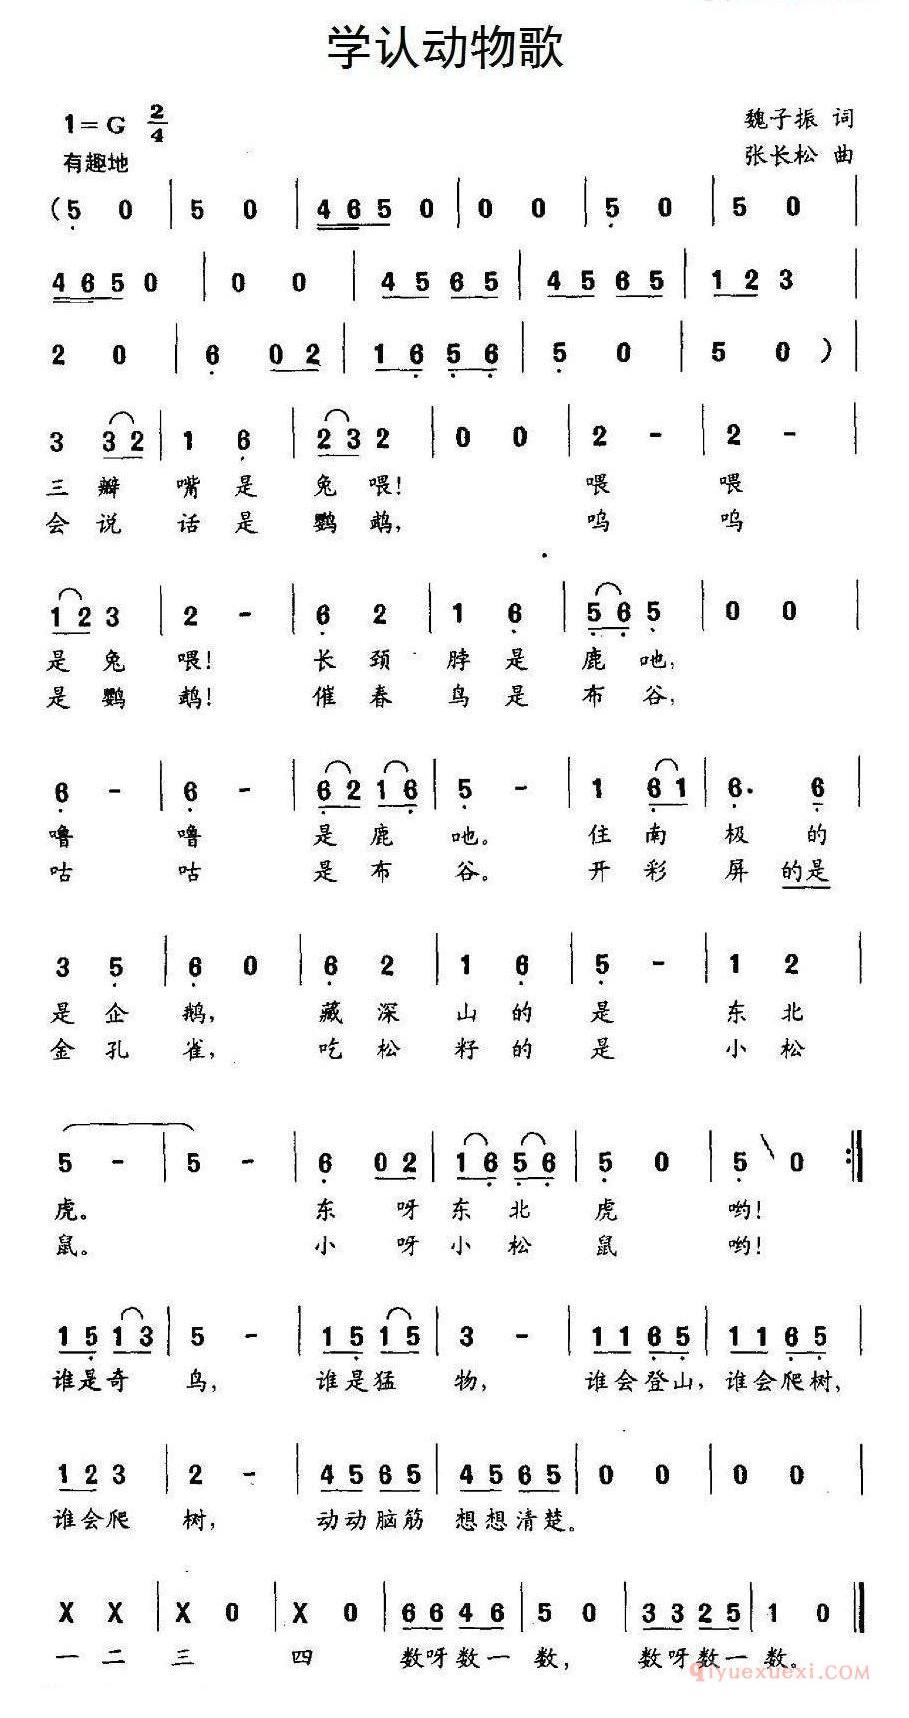 学认动物歌
1=G 2/4
魏子振 词
有趣地
张长松 曲
(5 0 | 5 0 | 4 6 5 0 | 0 0 | 5 0 | 5 0 |
4 6 5 0 | 0 0 | 4 5 6 5 | 4 5 6 5 | 1 2 3 |
2 0 | 6 0 2 | 1 6 5 6 | 5 0 | 5 0 ) |
3 3 2 | 1 6 | 2 3 2 | 0 0 | 2 - | 2 - |
三 瓣 嘴 是 兔 喂! 喂 喂
会 说 话 是 鹦 鹉, 呜 呜
1 2 3 | 2 - | 6 2 | 1 6 | 5 6 5 | 0 0 |
是 兔 喂! 长 颈 脖 是 鹿 吔,
是 鹦 鹉! 催 春 鸟 是 布 谷,
6 - | 6 - | 6 2 1 6 | 5 - | 1 6 1 | 6. 6 |
噜 噜 是 鹿 吔。 住 南 极 的
咕 咕 是 布 谷。 开 彩 屏 的是
3 5 | 6 0 | 6 2 | 1 6 | 5 - | 1 2 |
是 企 鹅, 藏 深 山 的 是 东 北
金 孔 雀, 吃 松 籽 的 是 小 松
5 - | 5 - | 6 0 2 | 1 6 5 6 | 5 0 | 5 0 :‖
虎。 东 呀 东 北 虎 哟!
鼠。 小 呀 小 松 鼠 哟!
1 5 1 3 | 5 - | 1 5 1 5 | 3 - | 1 1 6 5 | 1 1 6 5 |
谁是奇 鸟, 谁是猛 物, 谁会登山, 谁会爬树,
1 2 3 | 2 - | 4 5 6 5 | 4 5 6 5 | 0 0 | 0 0 |
谁会爬 树, 动动脑筋 想想清楚。
X X | X 0 | X 0 | 6 6 4 6 | 5 0 | 3 3 2 5 | 1 0 ‖
一 二 三 四 数呀数一 数, 数呀数一 数。
qiyuexuexi.COM